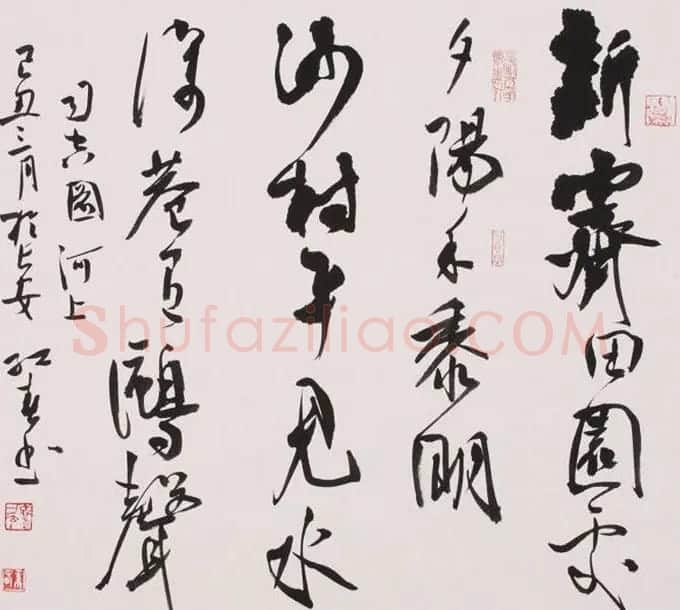 新霽田園處
夕陽禾黍明
沙村平見水
深巷有鷗聲
司空圖 河上
己丑三月於長安 書
Shufaziliao.COM